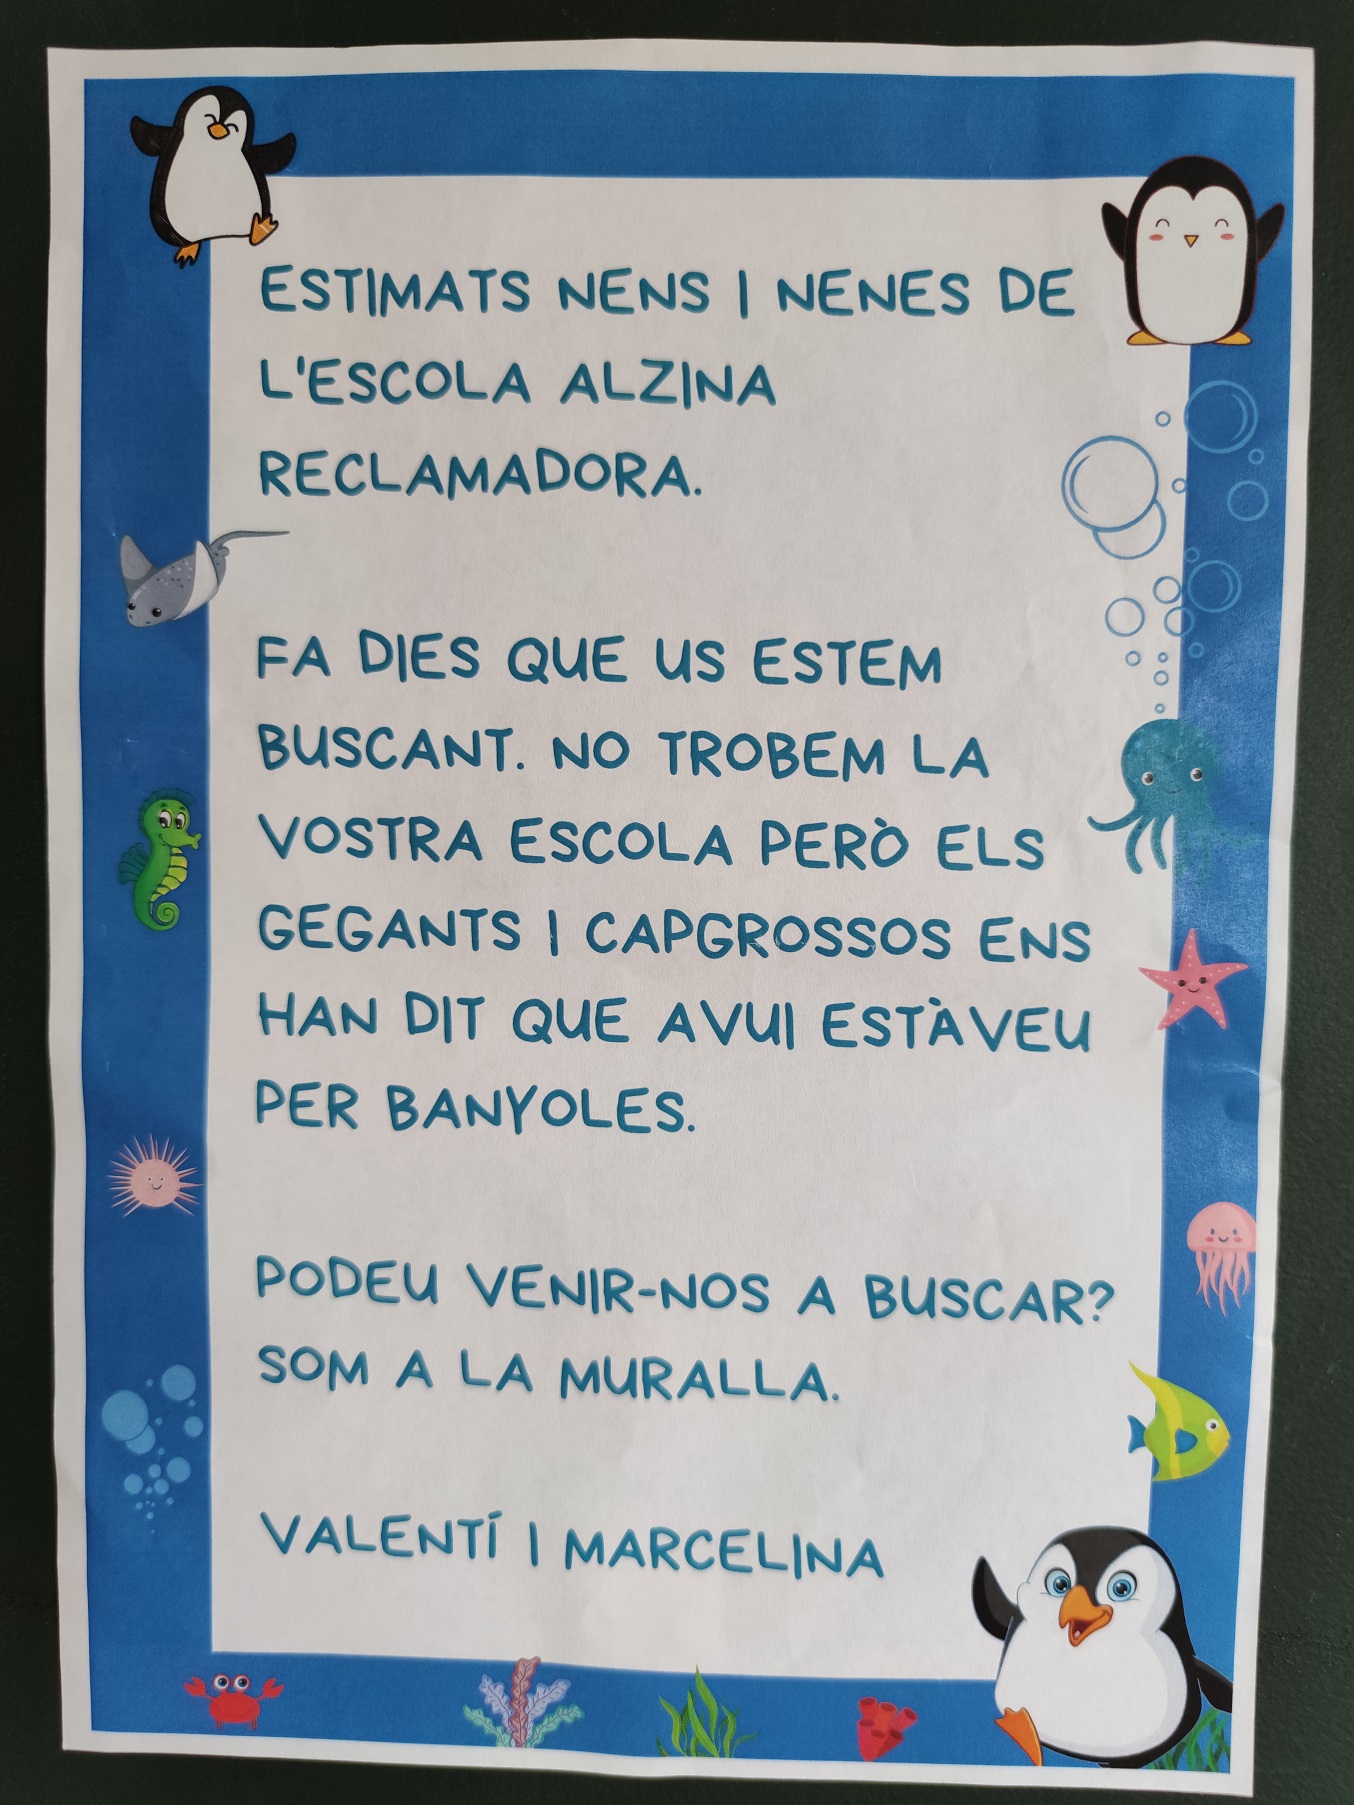 ESTIMATS NENS I NENES DE
L'ESCOLA ALZINA
RECLAMADORA.
FA DIES QUE US ESTEM
BUSCANT. NO TROBEM LA
VOSTRA ESCOLA PERÒ ELS
GEGANTS I CAPGROSSOS ENS
HAN DIT QUE AVUI ESTÀVEU
PER BANYOLES.
PODEU VENIR-NOS A BUSCAR?
SOM A LA MURALLA.
VALENTÍ I MARCELINA